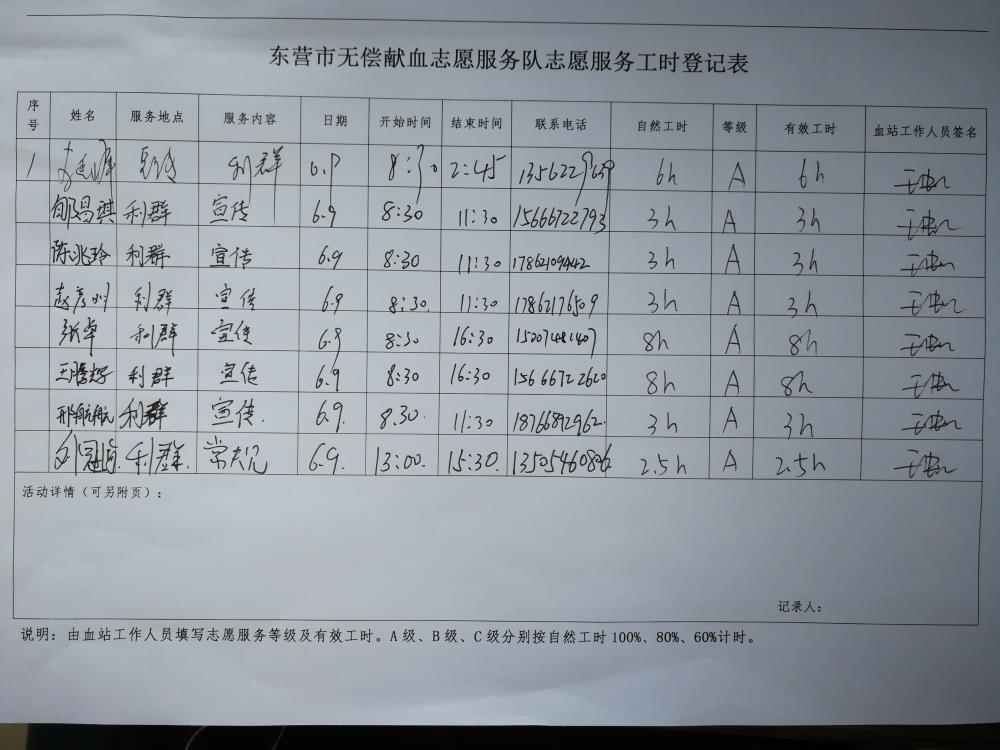 东营市无偿献血志愿服务队志愿服务工时登记表
序号 姓名 服务地点 服务内容 日期 开始时间 结束时间 联系电话 自然工时 等级 有效工时 血站工作人员签名
1 利群 6.9 8:30 2:45 6h A 6h
郇昌琪 利群 宣传 6.9 8:30 11:30 15666722793 3h A 3h
陈兆玲 利群 宣传 6.9 8:30 11:30 17862109442 3h A 3h
赵彦州 利群 宣传 6.9 8:30. 11:30 17862176509 3h A 3h
张卓 利群 宣传 6.9 8:30 16:30 15207481407 8h A 8h
王腾辉 利群 宣传 6.9 8:30 16:30 15666722620 8h A 8h
邢航航 利群 宣传. 6.9. 8.30. 11:30 18766872962. 3h A 3h
利群. 6.9. 13:00. 15:30. 13505460806 2.5h A 2.5h
活动详情（可另附页）：
记录人：
说明：由血站工作人员填写志愿服务等级及有效工时。A级、B级、C级分别按自然工时100%、80%、60%计时。